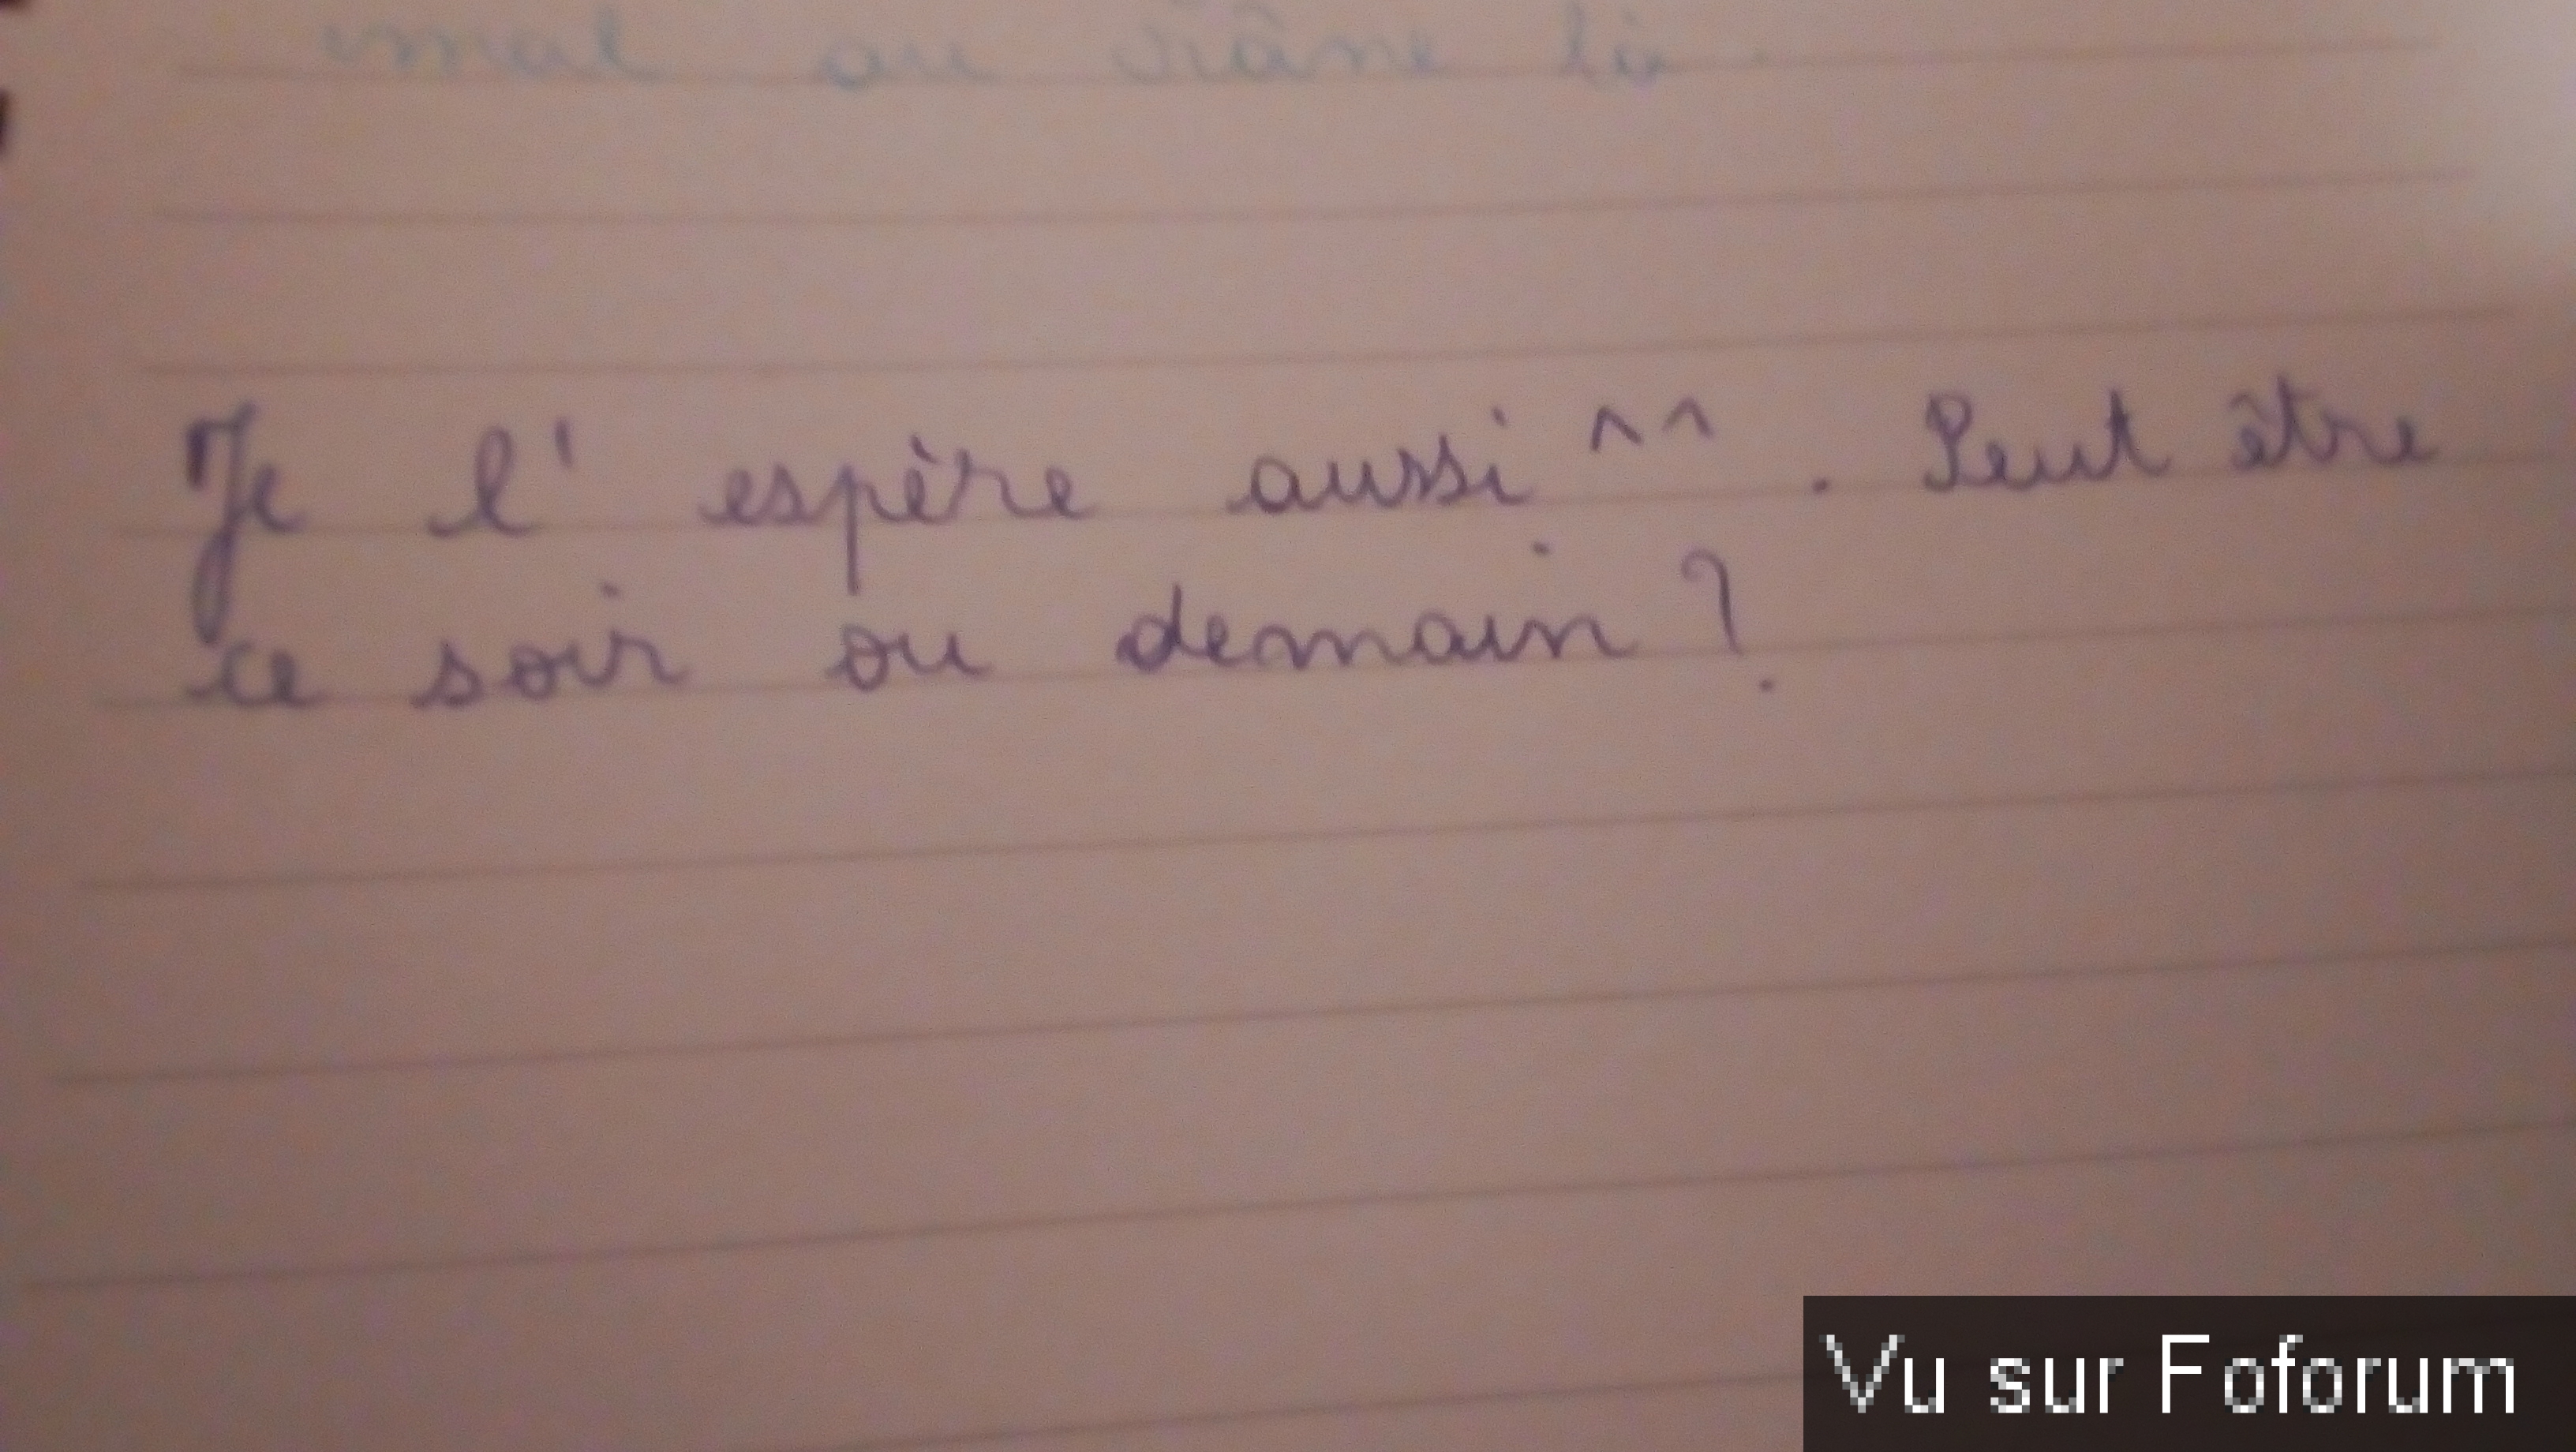 mal au crâne là.
Je l' espère aussi ^^ . Peut être
ce soir ou demain ?
Vu sur Foforum